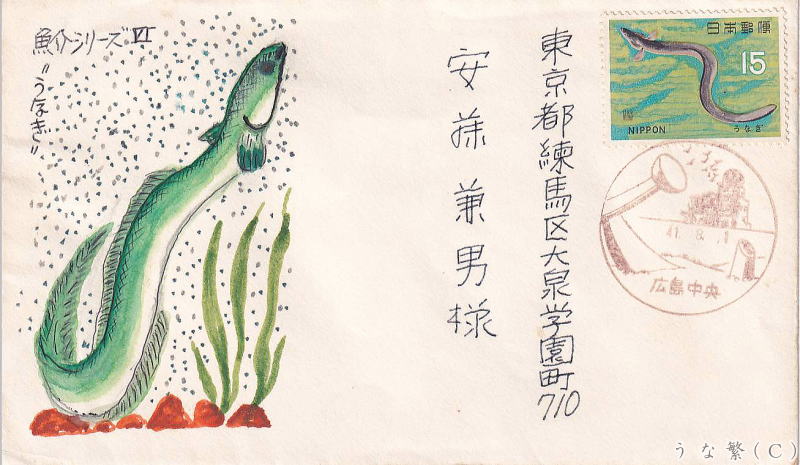 魚介シリーズⅥ
"うなぎ"
安藤兼男様
東京都練馬区大泉学園町
710
日本郵便
15
NIPPON
うなぎ
41.8.1
広島中央
うな繁(C)